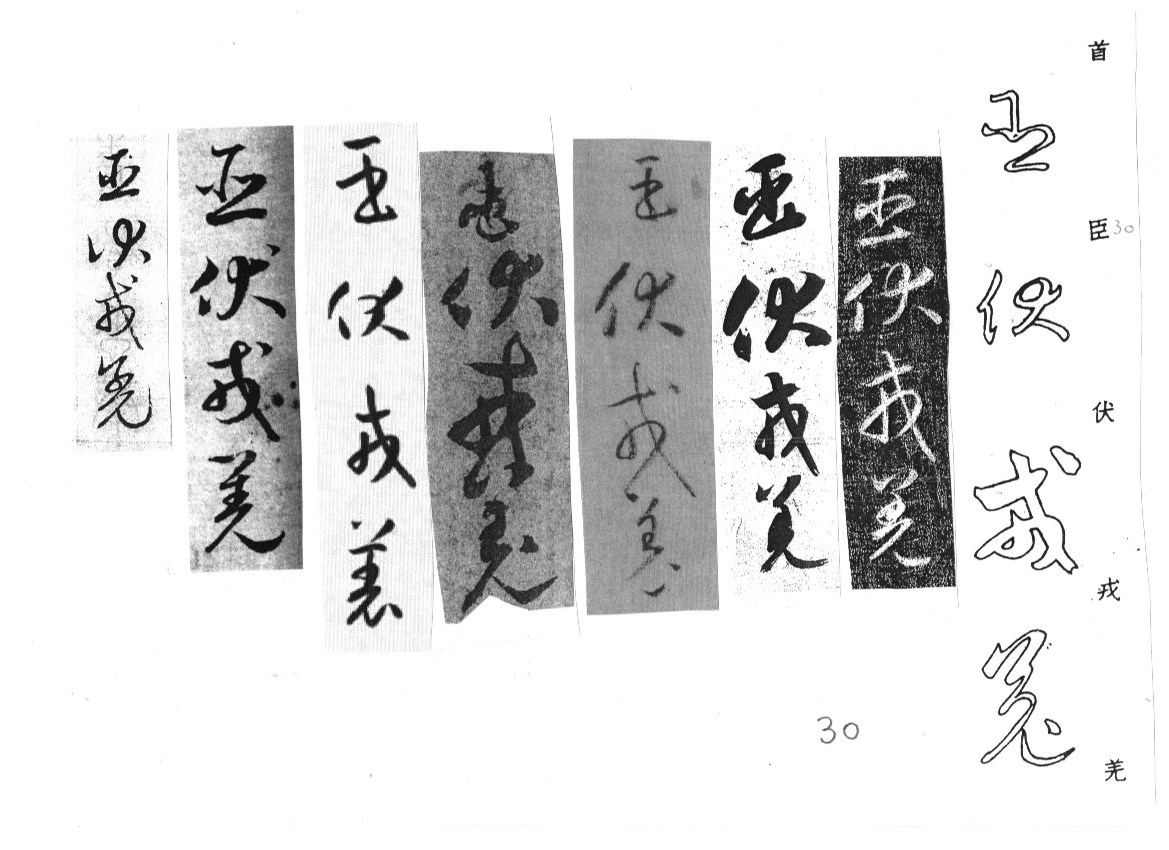 首臣30伏戎羌
臣伏戎羌
臣伏戎羌
臣伏戎羌
臣伏戎羌
臣伏戎羌
臣伏戎羌
臣伏戎羌
臣伏戎羌
30